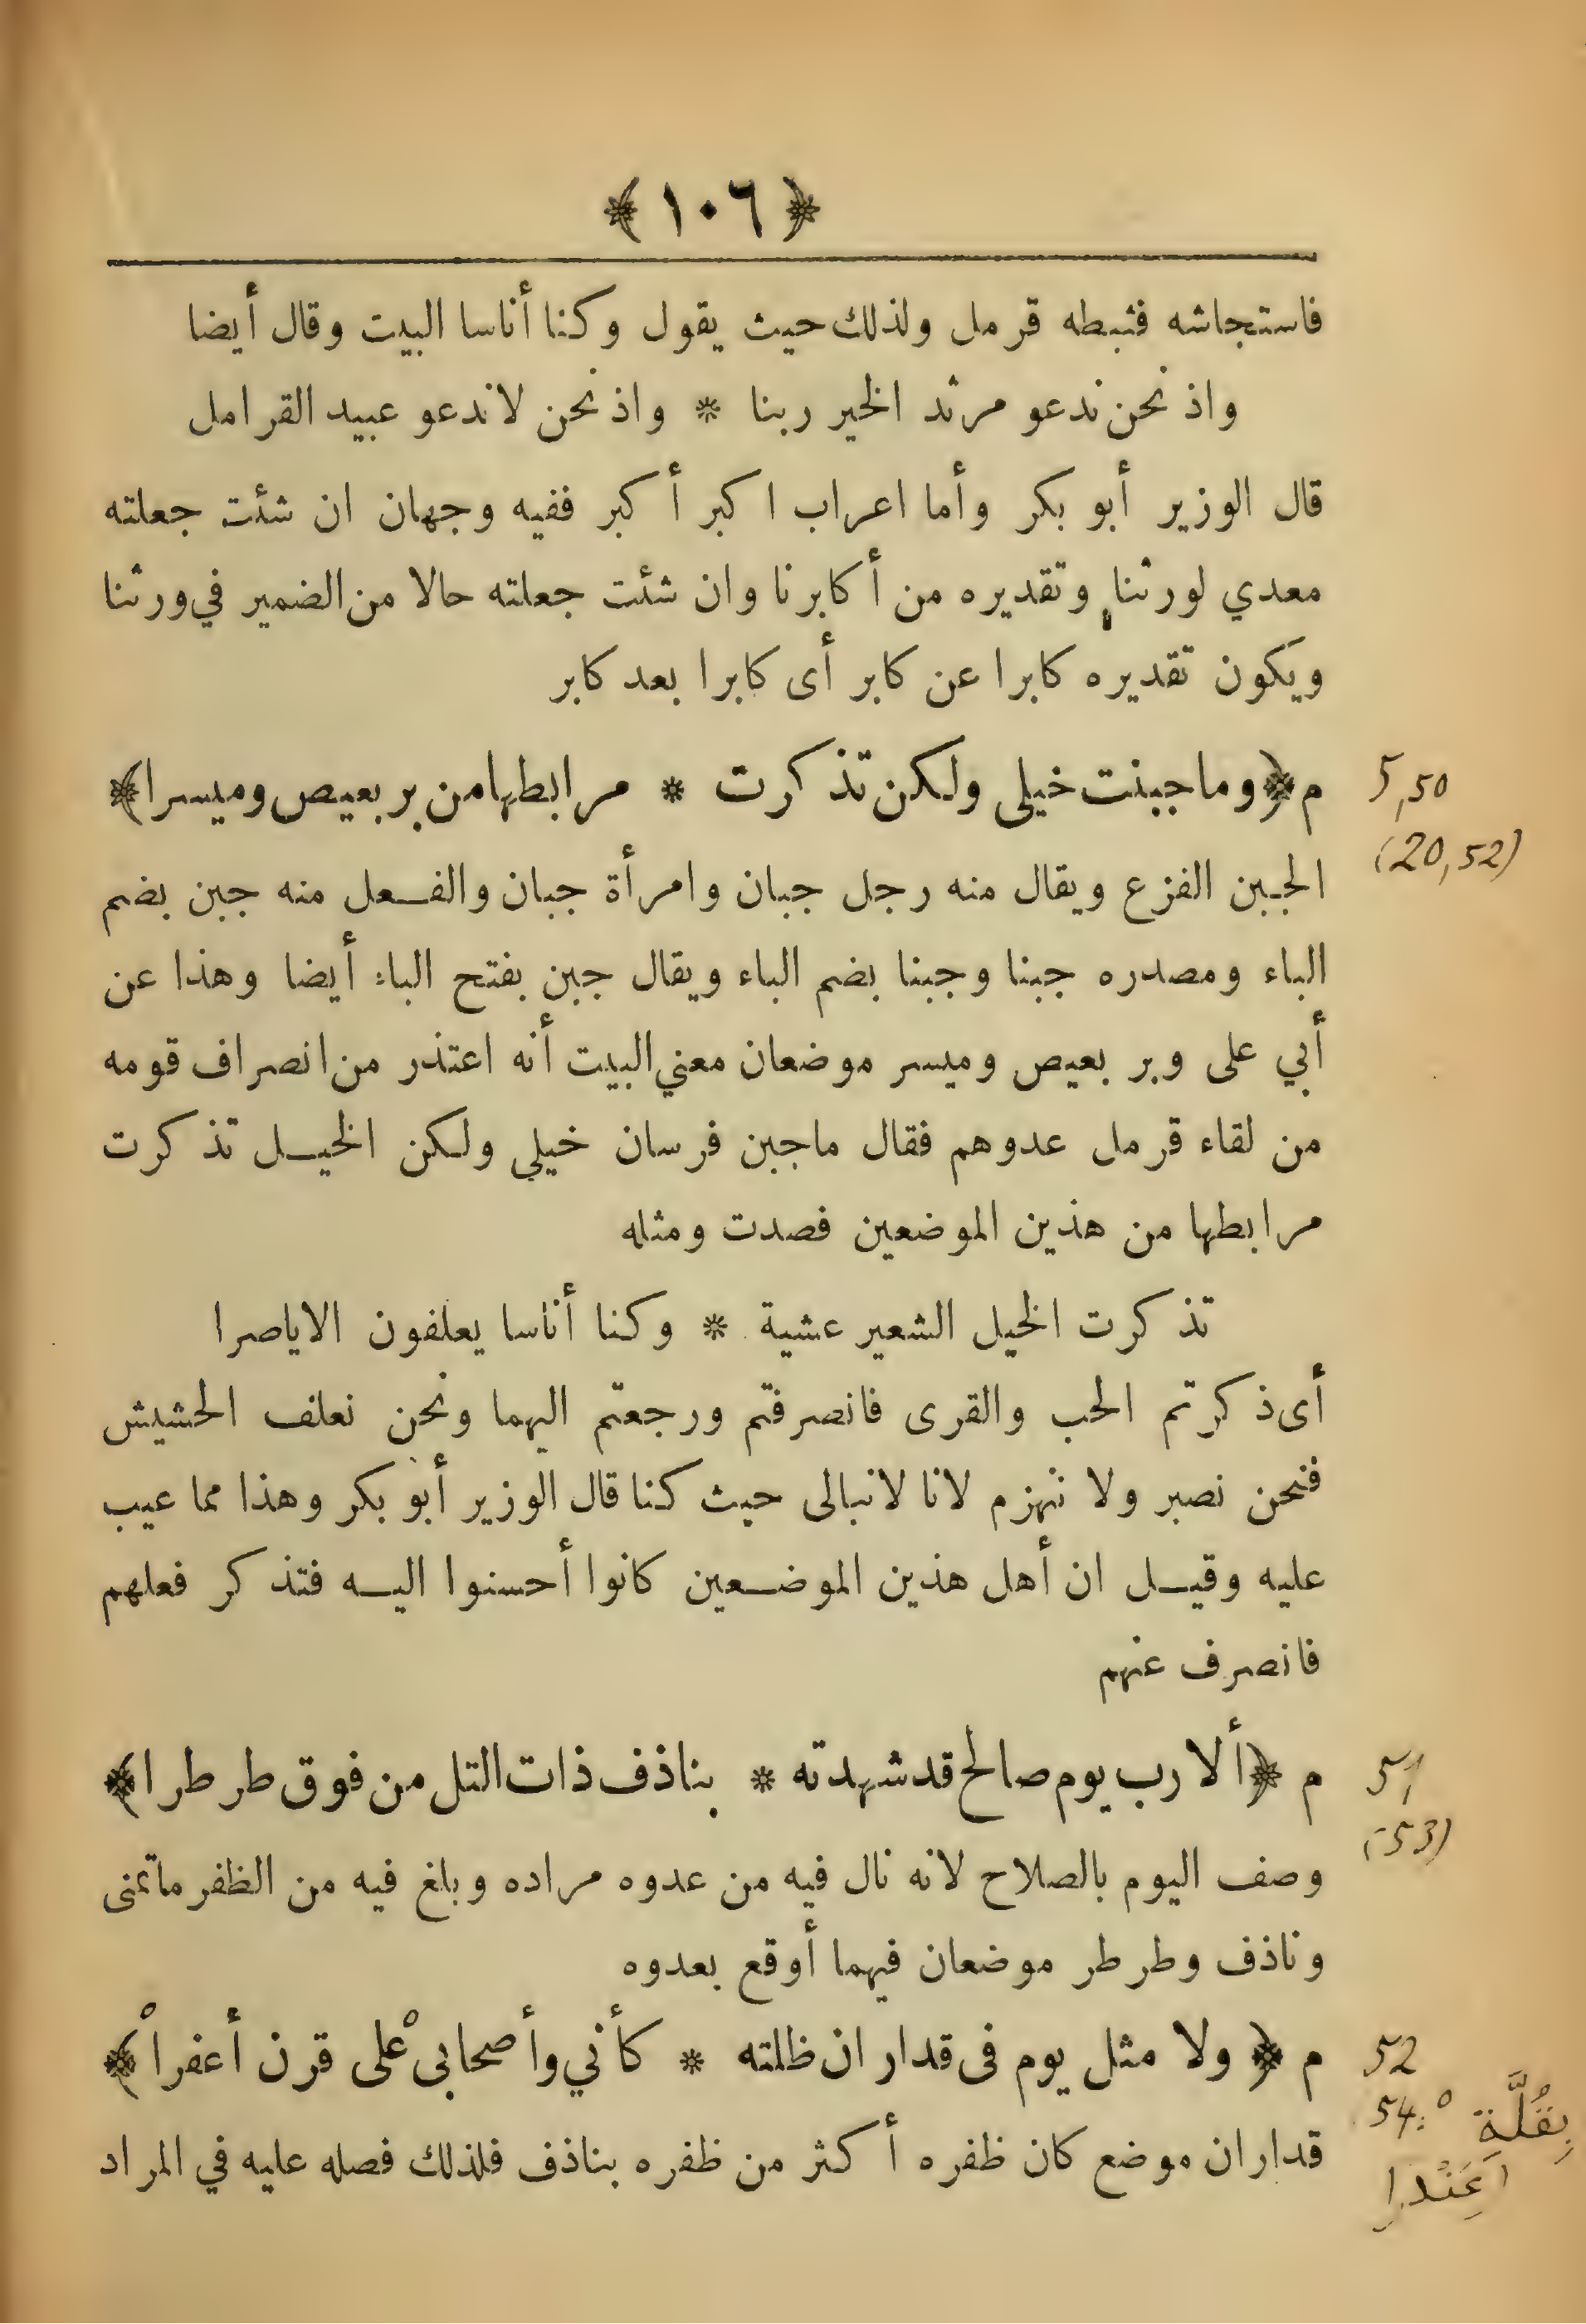 ﴿ ١٠٦ ﴾
فاستجاشه فثبطه قرمل ولذلك حيث يقول وكنا أناسا البيت وقال أيضا
واذ نحن ندعو مرثد الخير ربنا * واذ نحن لا ندعو عبيد القرامل
قال الوزير أبو بكر وأما اعراب اكبر أكبر ففيه وجهان ان شئت جعلته
معدي لورثنا وتقديره من أكابرنا وان شئت جعلته حالا من الضمير في ورثنا
ويكون تقديره كابرا عن كابر أى كابرا بعد كابر
م ﴿ وما جبنت خيلى ولكن تذكرت * مرابطها من بربعيص وميسرا ﴾
5,50
(20,52)
الجبن الفزع ويقال منه رجل جبان وامرأة جبان والفعل منه جبن بضم
الباء ومصدره جبنا وجبنا بضم الباء ويقال جبن بفتح الباء أيضا وهذا عن
أبي على وبربعيص وميسر موضعان معني البيت أنه اعتذر من انصراف قومه
من لقاء قرمل عدوهم فقال ماجبن فرسان خيلي ولكن الخيل تذكرت
مرابطها من هذين الموضعين فصدت ومثله
تذكرت الخيل الشعير عشية * وكنا أناسا يعلفون الاياصرا
أى ذكرتم الحب والقرى فانصرفتم ورجعتم اليهما ونحن نعلف الحشيش
فنحن نصبر ولا ننهزم لانا لانبالى حيث كنا قال الوزير أبو بكر وهذا مما عيب
عليه وقيل ان أهل هذين الموضعين كانوا أحسنوا اليه فتذكر فعلهم
فانصرف عنهم
م ﴿ ألا رب يوم صالح قد شهدته * بناذف ذات التل من فوق طرطرا ﴾
51
(53)
وصف اليوم بالصلاح لانه نال فيه من عدوه مراده وبلغ فيه من الظفر ماتمنى
وناذف وطرطر موضعان فيهما أوقع بعدوه
م ﴿ ولا مثل يوم فى قداران ظلته * كأني وأصحابى ْعلى قرن أعفراْ ﴾
52
54:° بِقُلَّةِ
قداران موضع كان ظفره أكثر من ظفره بناذف فلذلك فصله عليه في المراد